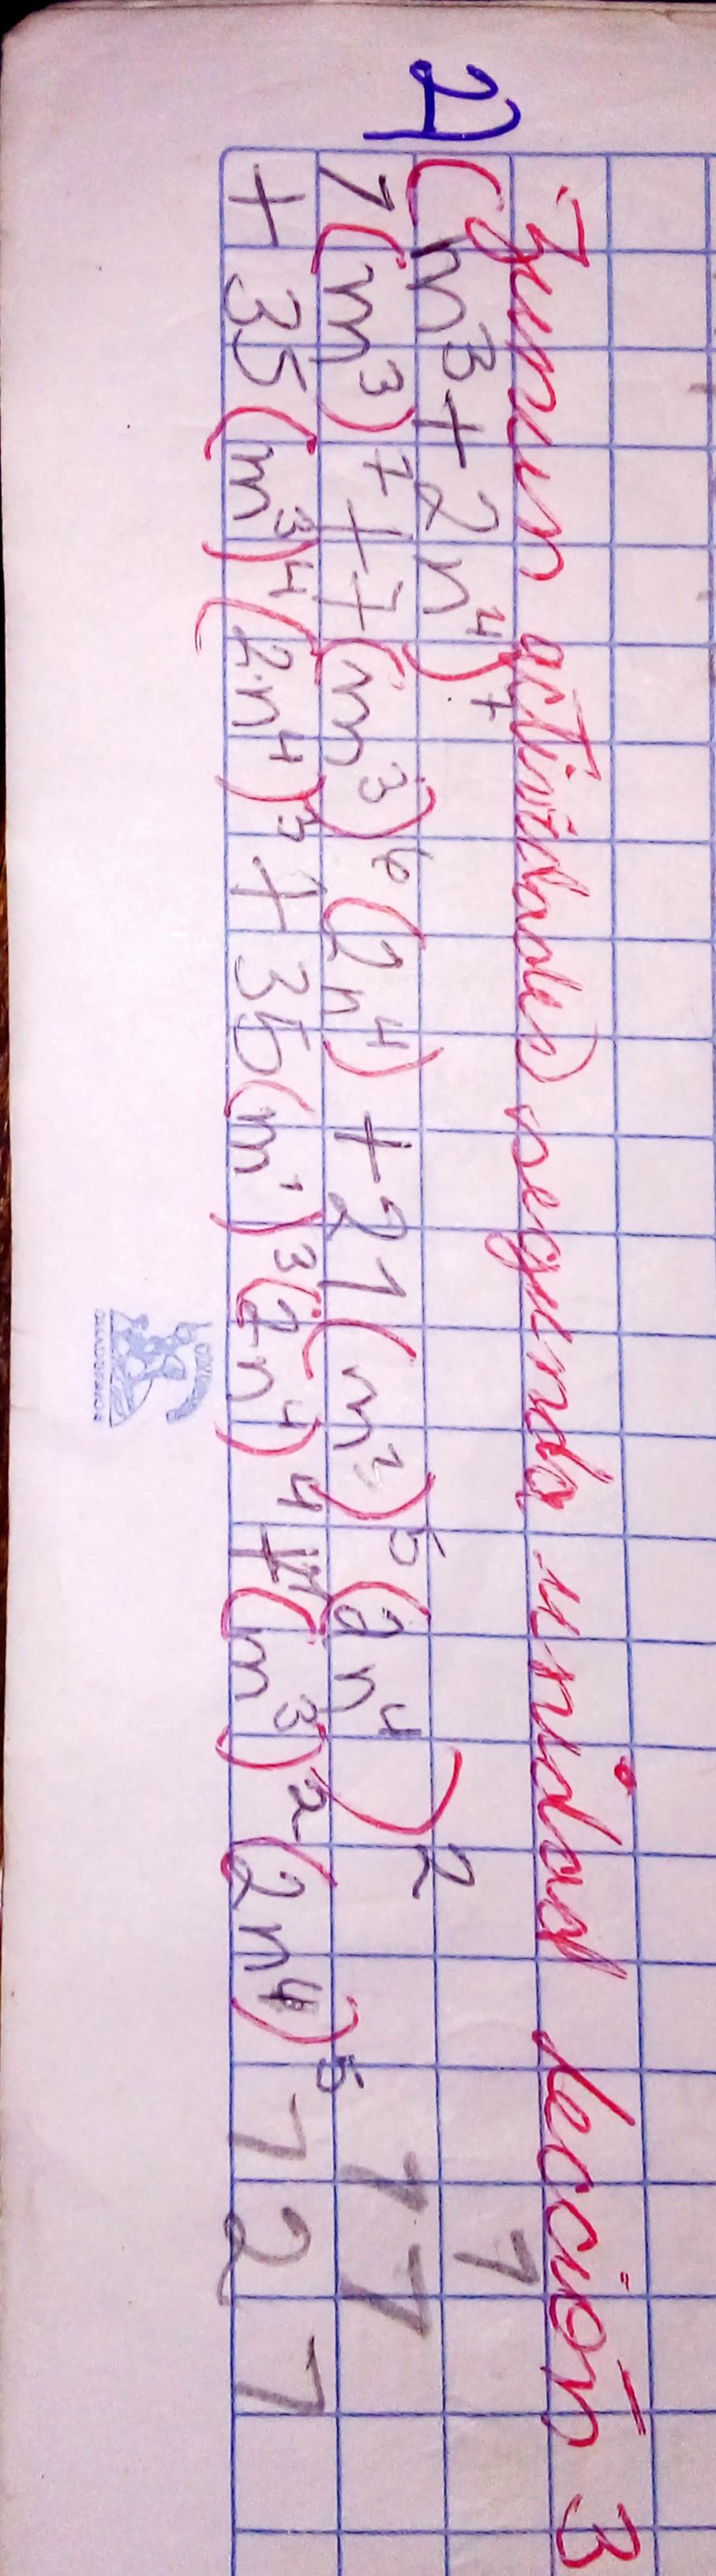 Zunun actividades segunda unidad lección 3
2) (m³+2n⁴)⁷ 1
1(m³)⁷+7(m³)⁶(2n⁴)+21(m³)⁵(2n⁴)² 1 1
+35(m³)⁴(2n⁴)³+35(m³)³(2n⁴)⁴+(m³)²(2n⁴)⁵ 1 2 1